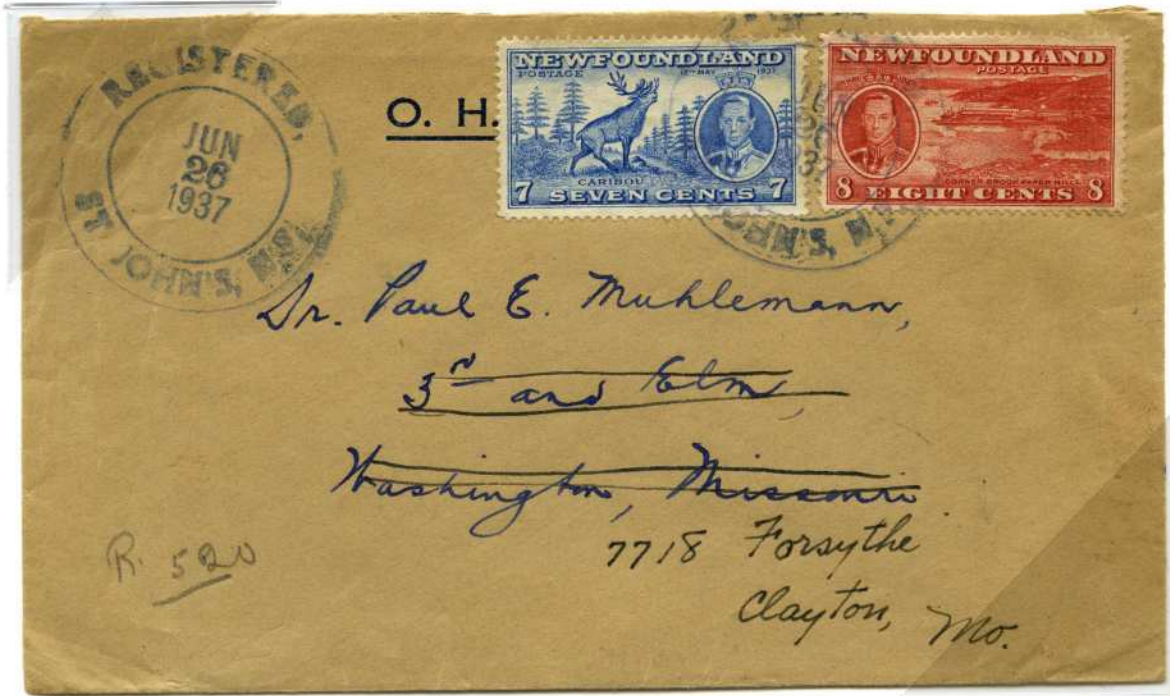 REGISTERED,
JUN
26
1937
ST JOHN'S, N'F'L'D
O. H.
NEWFOUNDLAND
POSTAGE 12TH MAY 1937
CARIBOU
7 SEVEN CENTS 7
NEWFOUNDLAND
POSTAGE
CORNER BROOK PAPER MILL
8 EIGHT CENTS 8
JUN
26
37
JOHN'S, N
Dr. Paul E. Muhlemann,
3rd and Elm,
Washington, Missouri
7718 Forsythe
Clayton, Mo.
R. 520